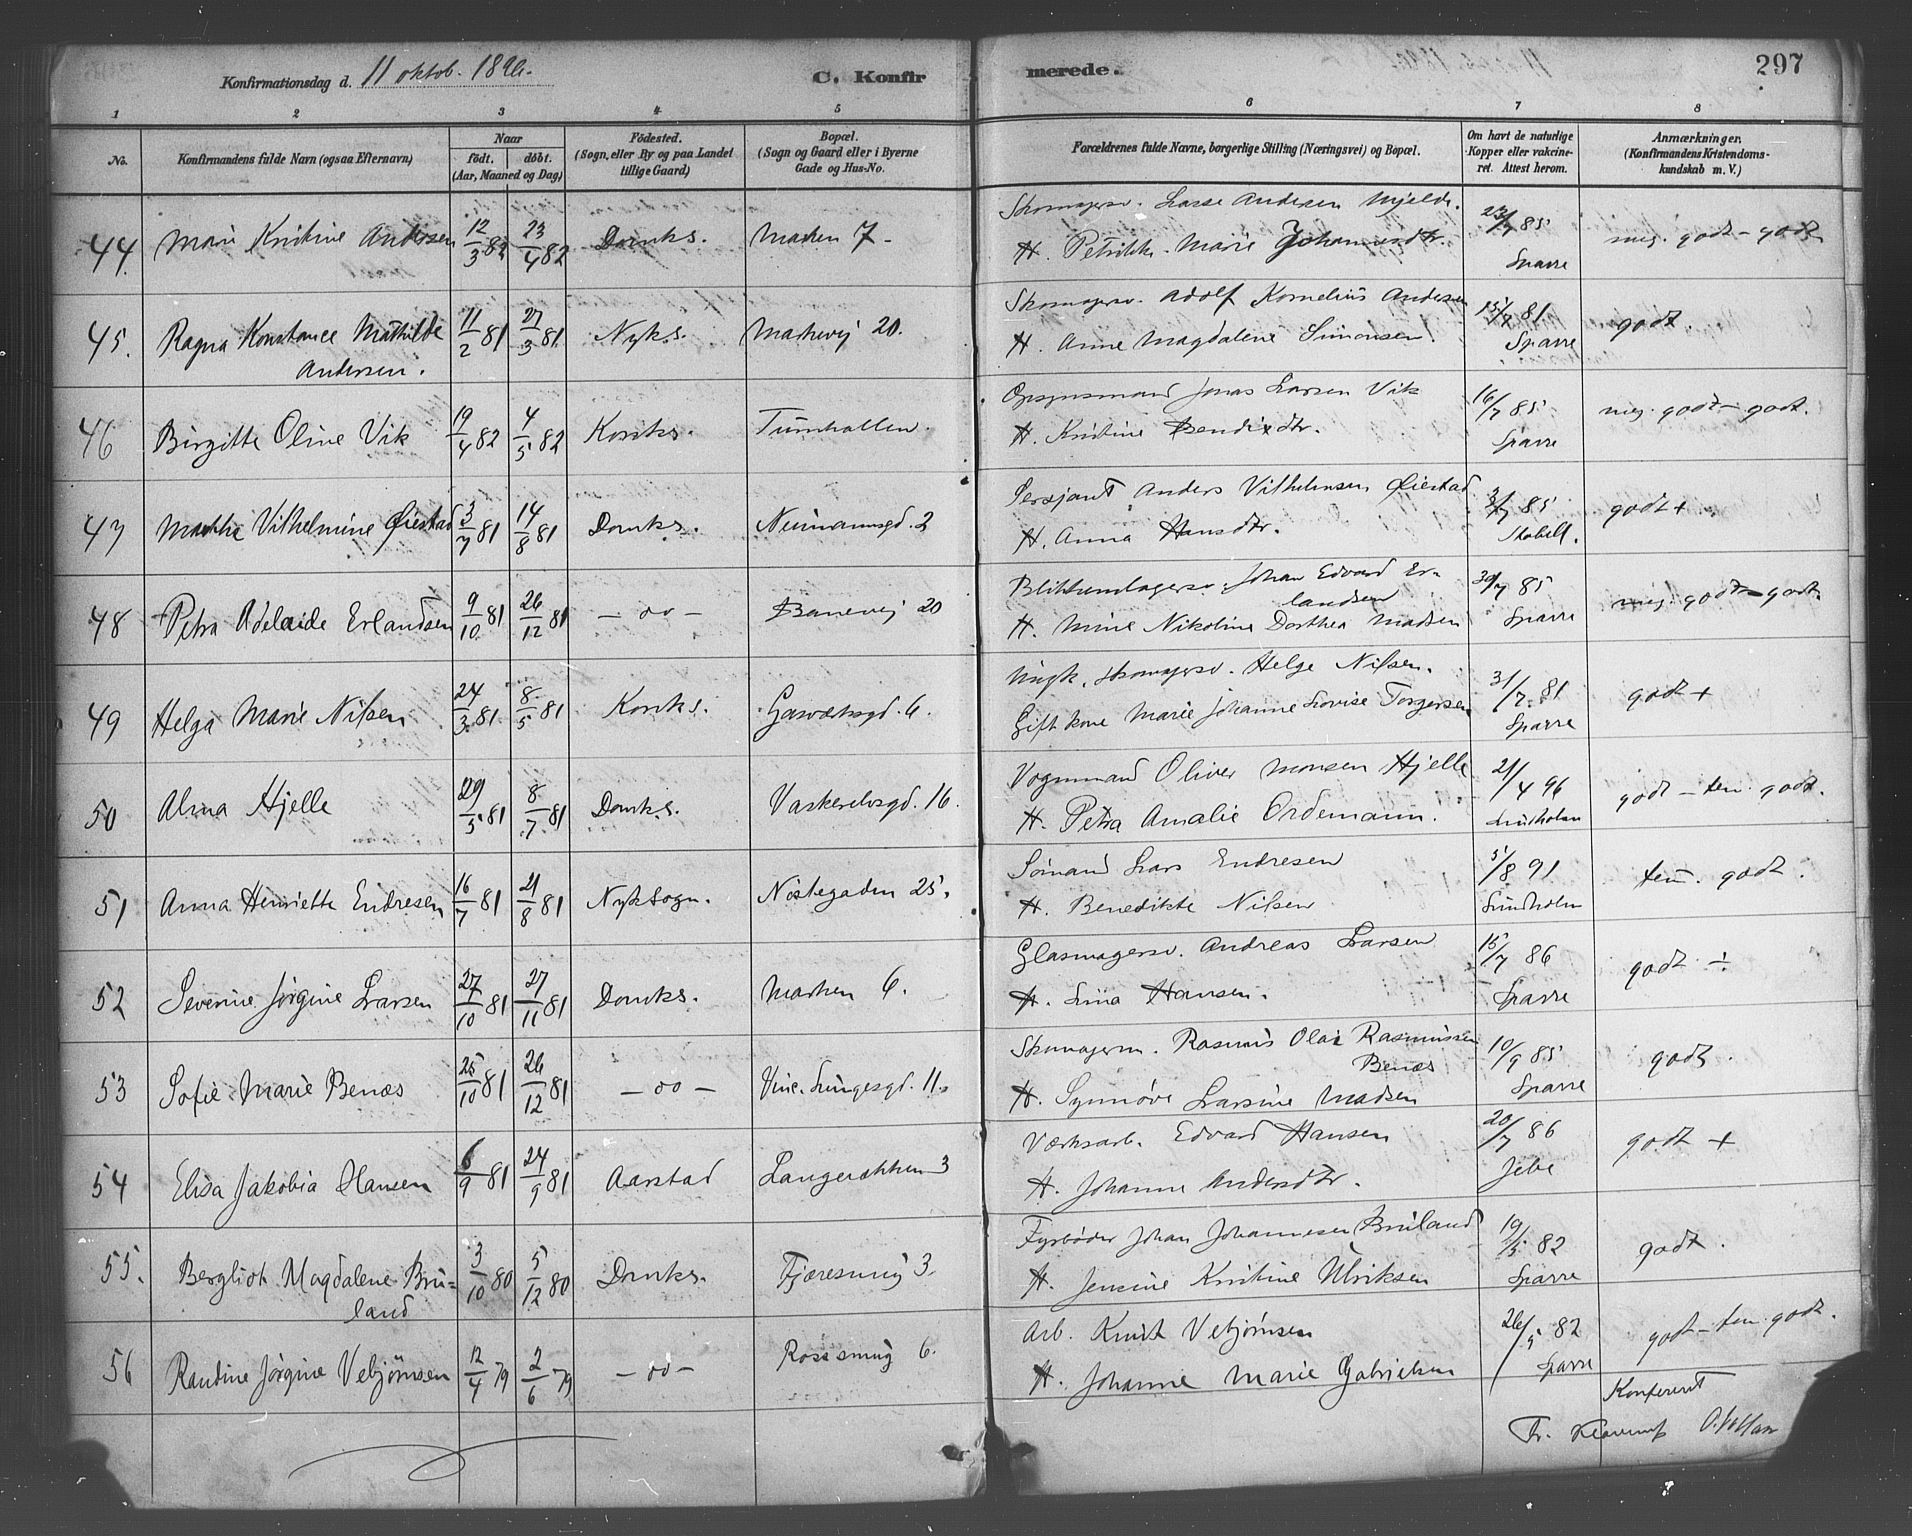 Konfirmationsdag d. 11 oktob. 1896.
C. Konfirmerede.
297
1 2 3 4 5 6 7 8
No.
Konfirmandens fulde Navn (ogsaa Efternavn)
Naar
født. døbt.
(Aar, Maaned og Dag)
Födested.
(Sogn, eller By og paa Landet
tillige Gaard)
Bopæl.
(Sogn og Gaard eller i Byerne
Gade og Hus-No.
Forældrenes fulde Navne, borgerlige Stilling (Næringsvei) og Bopæl.
Om havt de naturlige
Kopper eller vakcine-
ret. Attest herom.
Anmærkninger.
(Konfirmandens Kristendoms-
kundskab m. V.)
44. Marie Kristine Andersen 12/3 82 23/4 82 Domks. Marken 7 -
Skomagersv. Lars Andersen Mjelde.
H. Petrikke Marie Johannesdtr
23/7 85
Sparre
meg. godt - godt
45. Ragna Konstance Mathilde
Andersen.
11/2 81 27/3 81 Nyks. Markevej 20.
Skomagersv. Adolf Kornelius Andersen
H. Anne Magdalene Simonsen.
15/7 81
Sparre
godt.
46 Birgitte Oline Vik 19/4 82 4/5 82 Korsks. Turnhallen.
Opsynsmand Jonas Larsen Vik
H. Kristine Bendixdtr.
16/7 85
Sparre
meg. godt - godt.
47 Martha Vilhelmine Øiestad 3/7 81 14/8 81 Domks. Neumannsgd. 2
Sersjant Anders Vilhelmsen Øiestad
H. Anna Hansdtr.
3/7 85
Stabell.
godt +
48 Petra Adelaide Erlandsen 9/10 81 26/12 81 - oo - Banevej 20
Blikkenslagersv. Johan Edvard Er-
landsen
H. Mine Nikoline Dorthea Madsen
30/7 85
Sparre
meg. godt - godt.
49 Helga Marie Nilsen 24/3 81 8/5 81 Korsks. 6.
Ungk. skomagersv. Helge Nilsen.
Gift kone Marie Johanne Lovise Torgersen
31/7 81
Sparre
godt +
50 Alma Hjelle 29/5 81 8/7 81 Domks. Vaskerelvsgd. 16.
Vognmand Oliver Monsen Hjelle
H. Petra Amalie Ordemann.
21/4 96
Lindholm
godt - tem. godt.
51 Anna Henriette Endresen 16/7 81 21/8 81 Nyksogn. Nøstegaden 25.
Sömand Lars Endresen
H. Benedikte Nilsen
5/8 91
Lindholm
tem. godt.
52 Severine Jørgine Larsen 27/10 81 27/11 81 Domks. Marken 6.
Glasmagersv. Andreas Larsen
H. Lina Hansen.
15/7 86
Sparre
godt ÷
53 Sofie Marie Benæs 25/10 81 26/12 81 - oo - Vinc. Lungesgd. 11.
Skomagerm. Rasmus Olai Rasmussen
Benæs
H. Synnøve Larsine Madsen
10/9 85
Sparre
godt.
54 Elisa Jakobia Hansen 6/9 81 24/9 81 Aarstad Langerækken 3
Værksarb. Edvard Hansen
H. Johanne Andersdtr.
20/7 86
Jebe
godt +
55. Bergliot Magdalene Bru-
land
3/10 80 5/12 80 Domks. Fjæresmug 3.
Fyrbøder Johan Johannesen Bruland
H. Jensine Kristine Ulriksen
19/5 82
Sparre
godt.
56 Randine Jørgine Vebjørnsen 12/4 79 2/6 79 - oo - Rosesmug 6.
Arb. Knut Vebjørnsen
H. Johanne Marie Gabrielsen
26/5 82
Sparre
godt - tem. godt.
Konfereret
Fr.